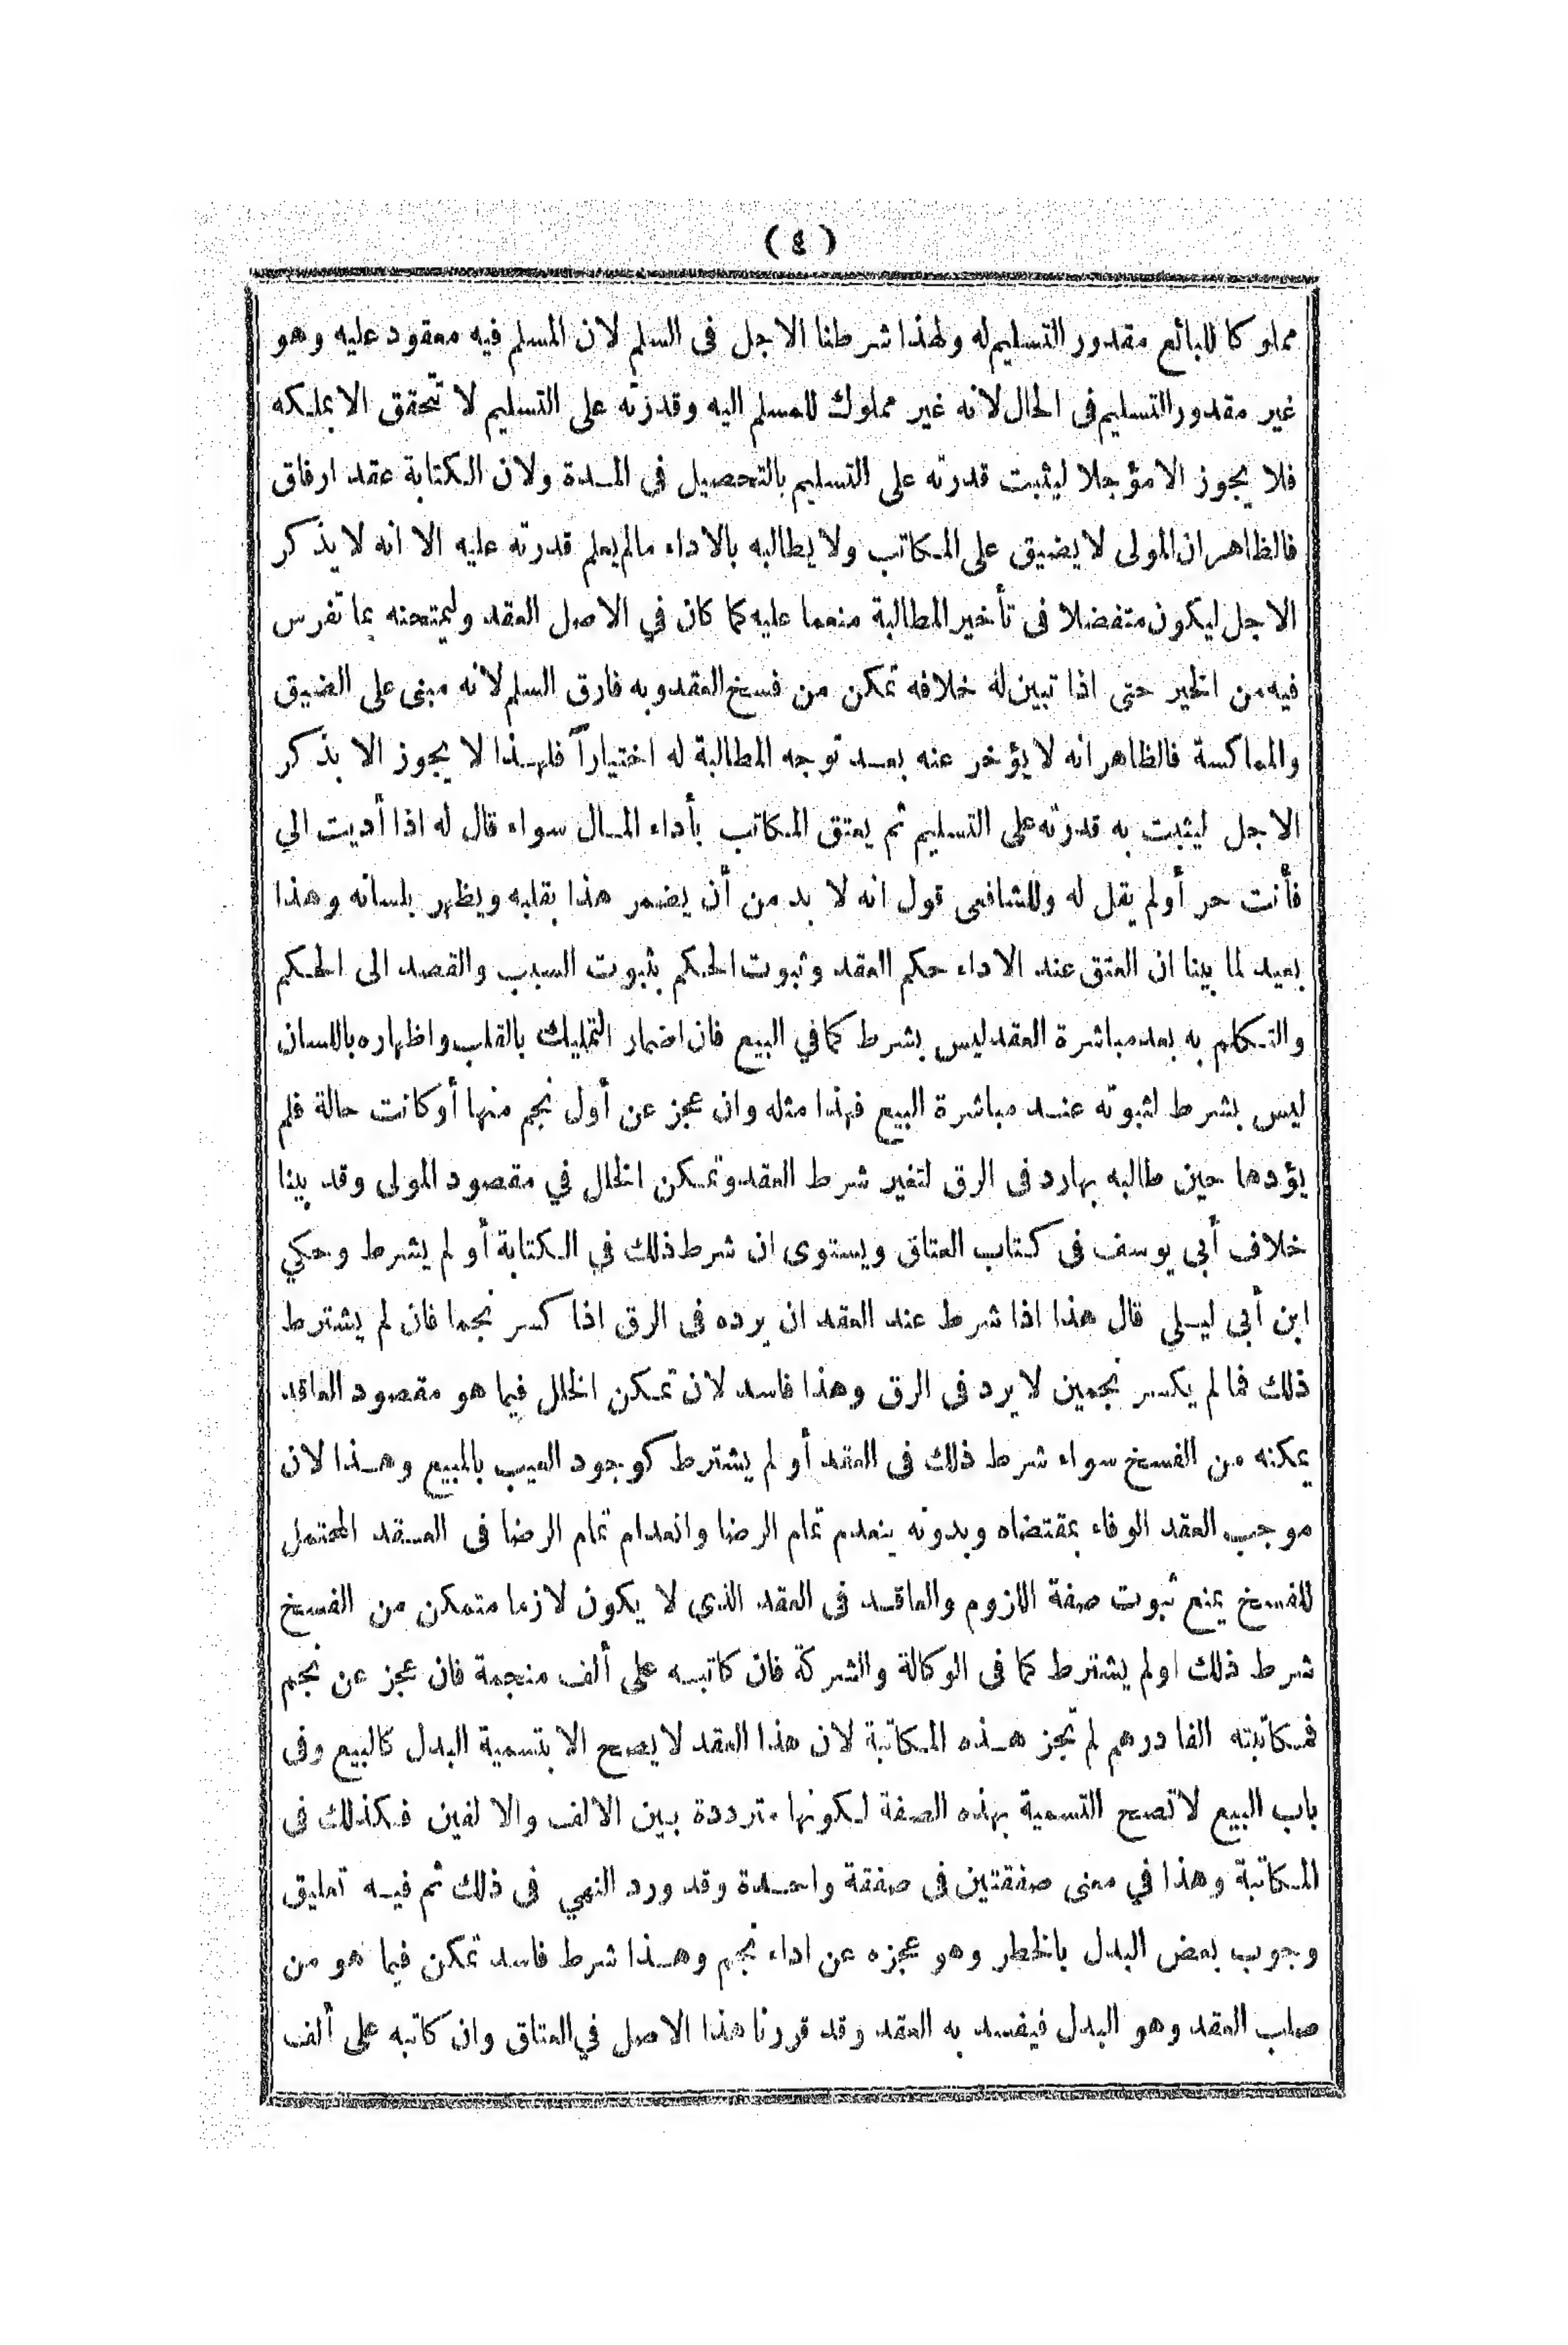 ( ٤ )
مملوكا للبائع مقدور التسليم له ولهذا شرطنا الاجل فى السلم لان المسلم فيه معقود عليه وهو
غير مقدور التسليم فى الحال لانه غير مملوك للمسلم اليه وقدرته على التسليم لا تتحقق الا بملكه
فلا يجوز الا مؤجلا ليثبت قدرته على التسليم بالتحصيل فى المدة ولان الكتابة عقد ارفاق
فالظاهر ان المولى لا يضيق على المكاتب ولا يطالبه بالاداء مالم يعلم قدرته عليه الا انه لا يذكر
الاجل ليكون متفضلا فى تأخير المطالبة منعما عليه كما كان في الاصل العقد وليمتحنه بما تفرس
فيه من الخير حتى اذا تبين له خلافه تمكن من فسخ العقد وبه فارق السلم لانه مبنى على الضيق
والمماكسة فالظاهر انه لا يؤخر عنه بعد توجه المطالبة له اختياراً فلهذا لا يجوز الا بذكر
الاجل ليثبت به قدرته على التسليم ثم يعتق المكاتب بأداء المال سواء قال له اذا أديت الي
فأنت حر أو لم يقل له وللشافعى قول انه لا بد من أن يضمر هذا بقلبه ويظهر بلسانه وهذا
بعيد لما بينا ان العتق عند الاداء حكم العقد وثبوت الحكم بثبوت السبب والقصد الى الحكم
والتكلم به بعد مباشرة العقد ليس بشرط كما في البيع فان اضمار التمليك بالقلب واظهاره باللسان
ليس بشرط لثبوته عند مباشرة البيع فهذا مثله وان عجز عن أول نجم منها أو كانت حالة فلم
يؤدها حين طالبه بها رد فى الرق لتغير شرط العقد وتمكن الخلل في مقصود المولى وقد بينا
خلاف أبى يوسف فى كتاب العتاق ويستوى ان شرط ذلك في الكتابة أو لم يشرط وحكي
ابن أبى ليلى قال هذا اذا شرط عند العقد ان يرده فى الرق اذا كسر نجما فان لم يشترط
ذلك فما لم يكسر نجمين لا يرد فى الرق وهذا فاسد لان تمكن الخلل فيما هو مقصود العاقد
يمكنه من الفسخ سواء شرط ذلك فى العقد أو لم يشترط كوجود العيب بالمبيع وهذا لان
موجب العقد الوفاء بمقتضاه وبدونه ينعدم تمام الرضا وانعدام تمام الرضا فى العقد المحتمل
للفسخ يمنع ثبوت صفة اللزوم والعاقد فى العقد الذي لا يكون لازما متمكن من الفسخ
شرط ذلك او لم يشترط كما فى الوكالة والشركة فان كاتبه على ألف منجمة فان عجز عن نجم
فمكاتبته الفا درهم لم تجز هذه المكاتبة لان هذا العقد لا يصح الا بتسمية البدل كالبيع وفى
باب البيع لا تصح التسمية بهذه الصفة لكونها مترددة بين الالف والالفين فكذلك فى
المكاتبة وهذا في معنى صفقتين فى صفقة واحدة وقد ورد النهي فى ذلك ثم فيه تعليق
وجوب بعض البدل بالخطر وهو عجزه عن اداء نجم وهذا شرط فاسد تمكن فيما هو من
صلب العقد وهو البدل فيفسد به العقد وقد قررنا هذا الاصل في العتاق وان كاتبه على ألف